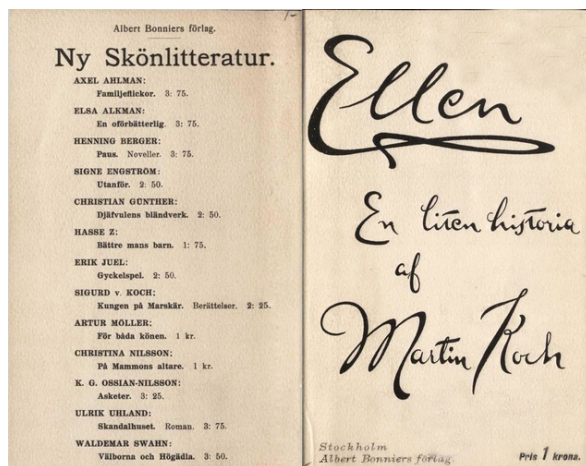 1-
Albert Bonniers förlag.
Ny Skönlitteratur.
AXEL AHLMAN:
Familjeflickor. 3: 75.
ELSA ALKMAN:
En oförbätterlig. 3: 75.
HENNING BERGER:
Paus. Noveller. 3: 75.
SIGNE ENGSTRÖM:
Utanför. 2: 50.
CHRISTIAN GÜNTHER:
Djäfvulens bländverk. 2: 50.
HASSE Z:
Bättre mans barn. 1: 75.
ERIK JUEL:
Gyckelspel. 2: 50.
SIGURD v. KOCH:
Kungen på Marskär. Berättelser. 2: 25.
ARTUR MÖLLER:
För båda könen. 1 kr.
CHRISTINA NILSSON:
På Mammons altare. 1 kr.
K. G. OSSIAN-NILSSON:
Asketer. 3: 25.
ULRIK UHLAND:
Skandalhuset. Roman. 3: 75.
WALDEMAR SWAHN:
Välborna och Högädla. 3: 50.
Ellen
En liten historia
af
Martin Koch
Stockholm
Albert Bonniers förlag.
Pris 1 krona.